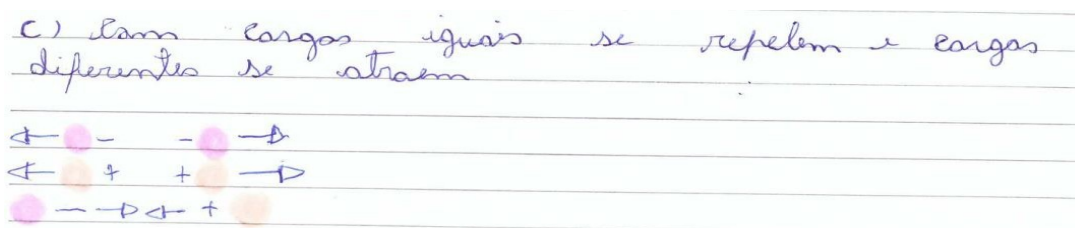 c) Com cargas iguais se repelem e cargas
diferentes se atraem
- -
+ +
- +